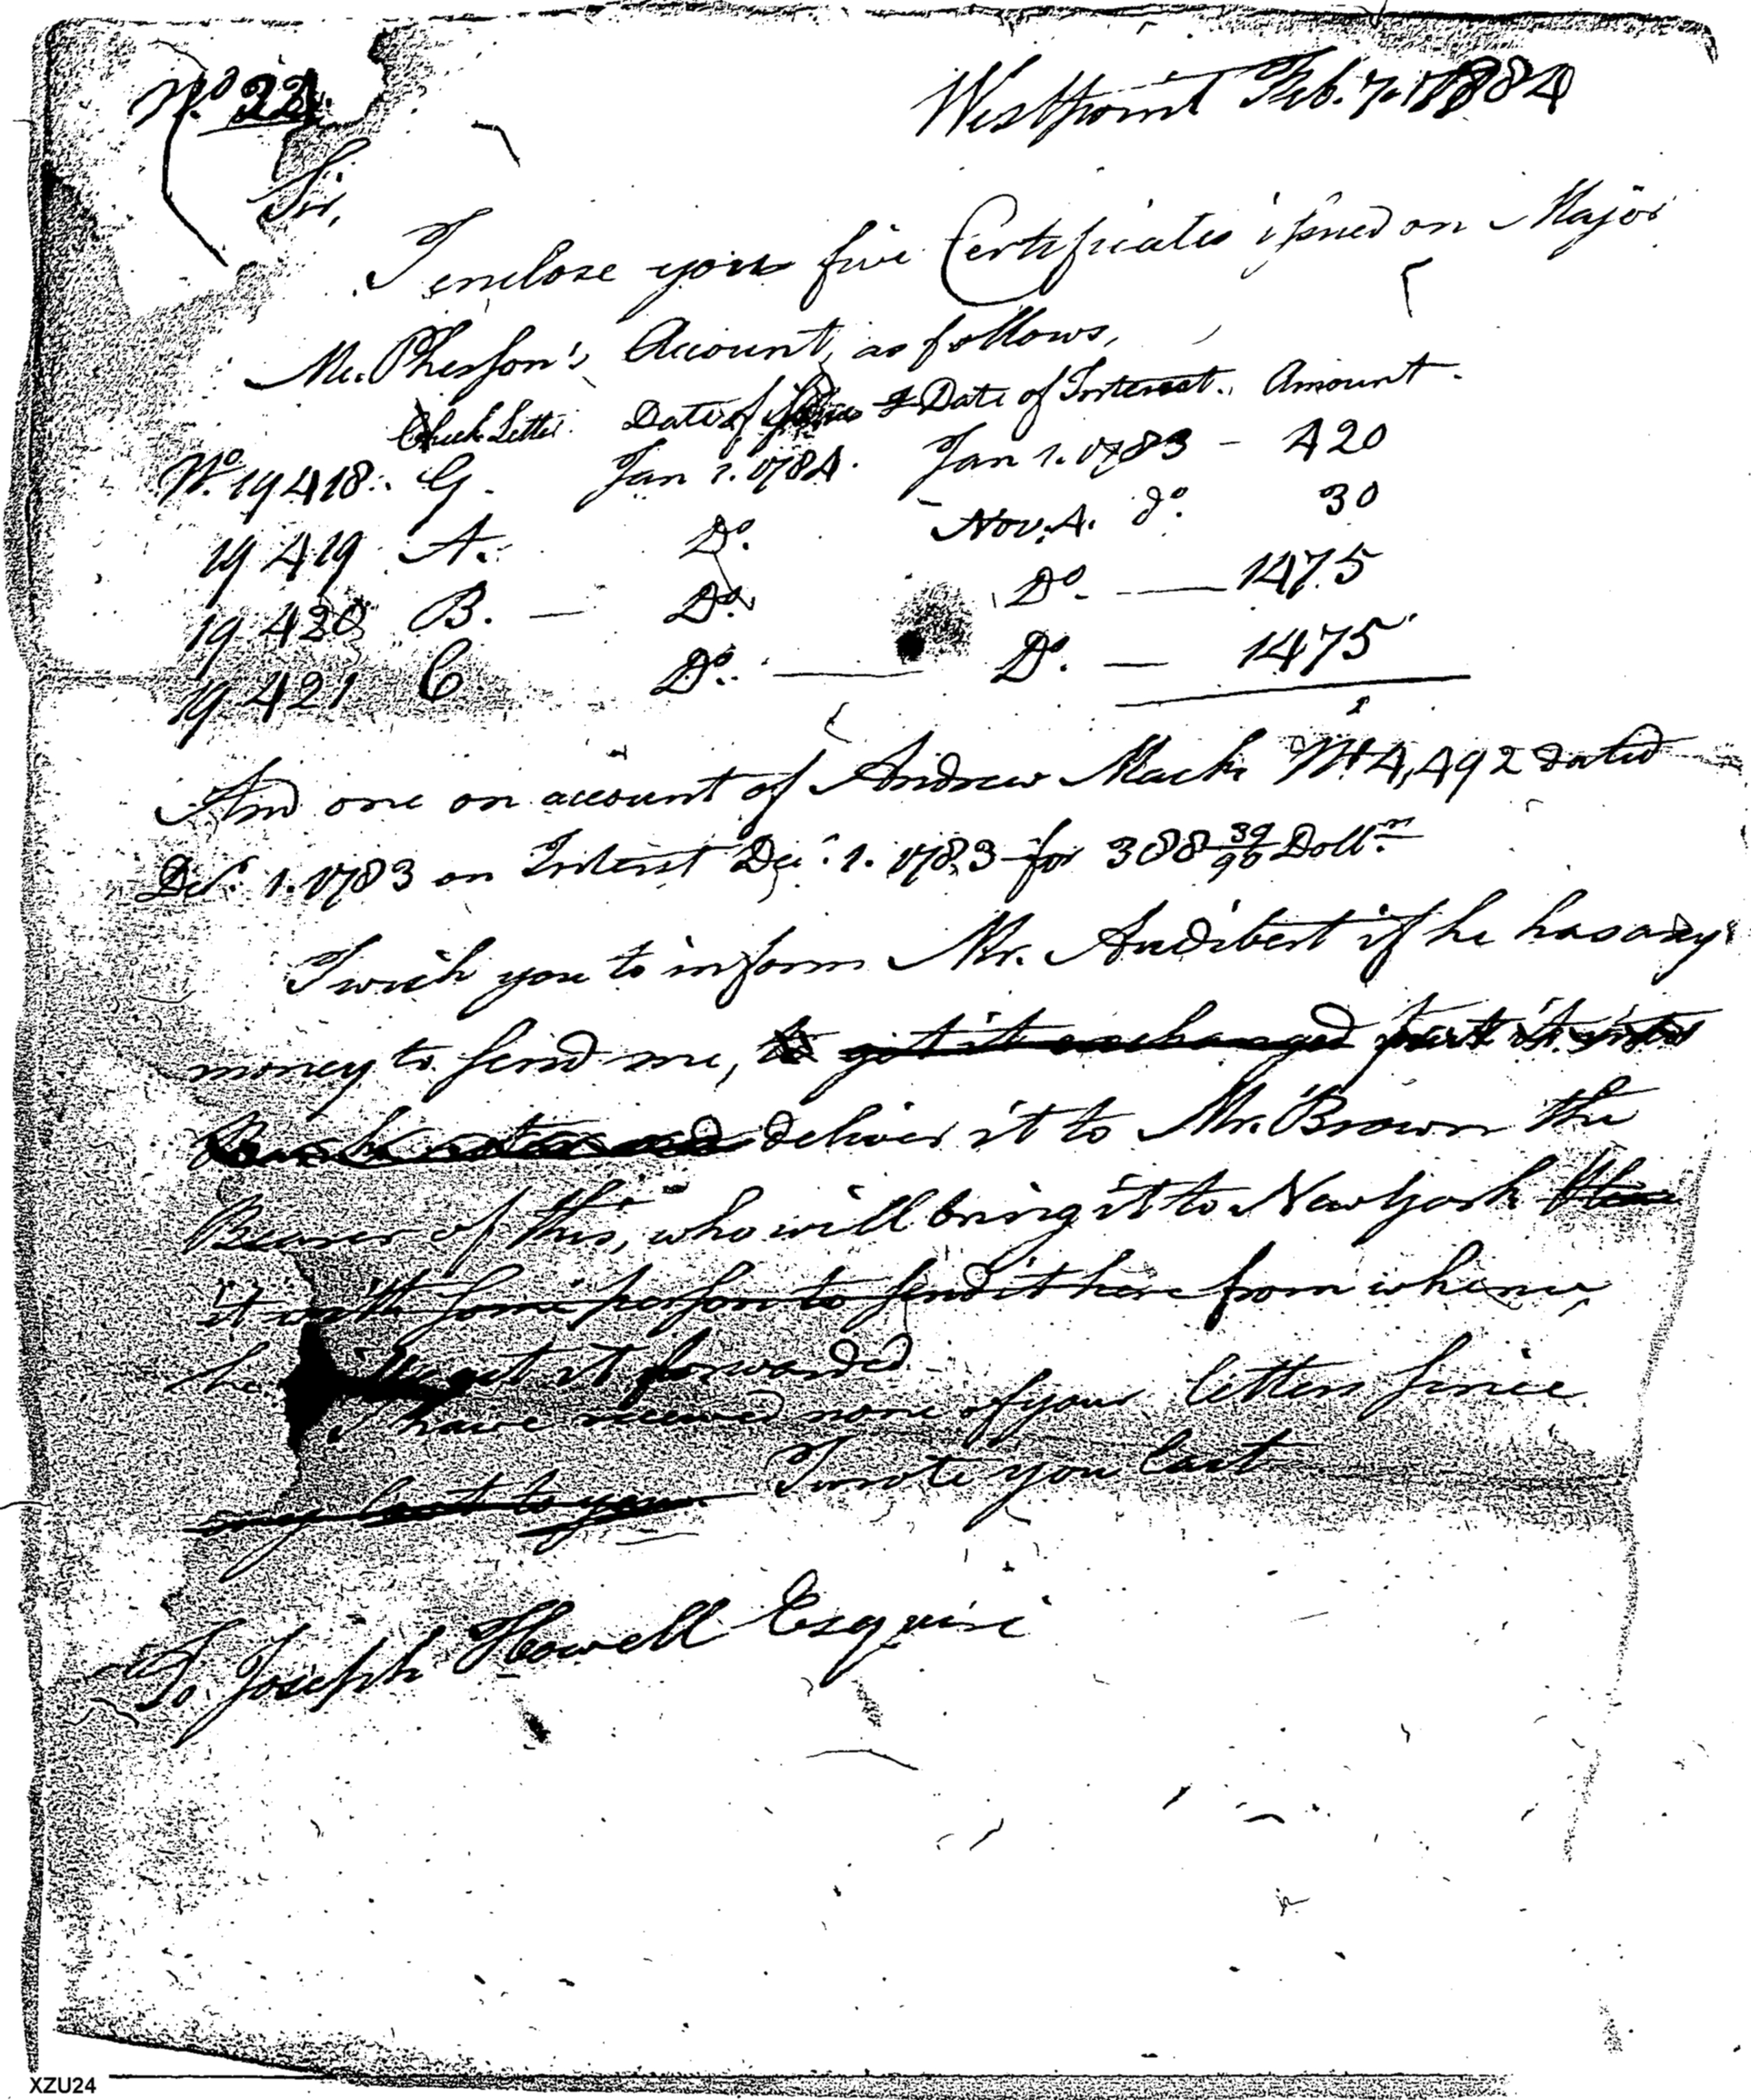 No. 22.
Westpoint Feb. 7. 1784
Sir,
I enclose you five Certificates issued on Major
Mc.Pherson's Account, as follows,
Check Letter. Date of Date of Interest. Amount.
No. 19418. G. Jan 1. 1784. Jan 1. 1783 - 420
19419 A. Do. Nov. 4. do. 30
19420 B. — Do. Do. — 1475
19421 C. Do. — Do. — 1475
And one on account of Andrew Mack No 4,492 dated
Decr. 1. 1783 on Interest Decr. 1. 1783 for 388 39/90 Dollrs.
I wish you to inform Mr. Audibert if he has any
money to send me, to get it exchanged
Bank notes and deliver it to Mr. Brown the
Bearer of this, who will bring it to New York
it with some person to send it here from whence,
he get it forwarded
I have received none of your letters since
my last to you. I wrote you last
To Joseph Howell Esquire
XZU24